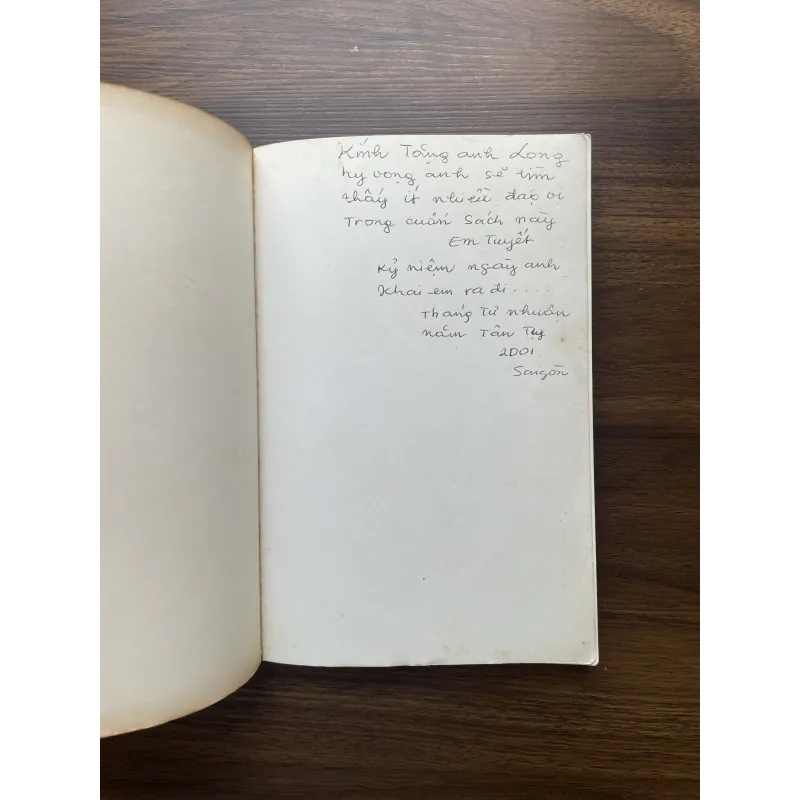 Kính Tặng anh Long
hy vọng anh sẽ tìm
thấy ít nhiều đạo vị
Trong cuốn sách này
Em Tuyết
Kỷ niệm ngày anh
Khai em ra đi....
Tháng Tư nhuận
năm Tân Tỵ
2001
Saigòn